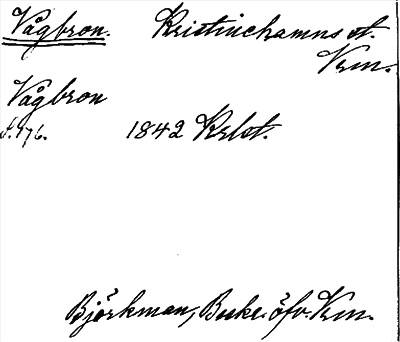 Vågbron. Kristinehamns st.
Vrm.
Vågbron
S. 176. 1842 Krlst.
Björkman, Beskr. öfv. Vrm.